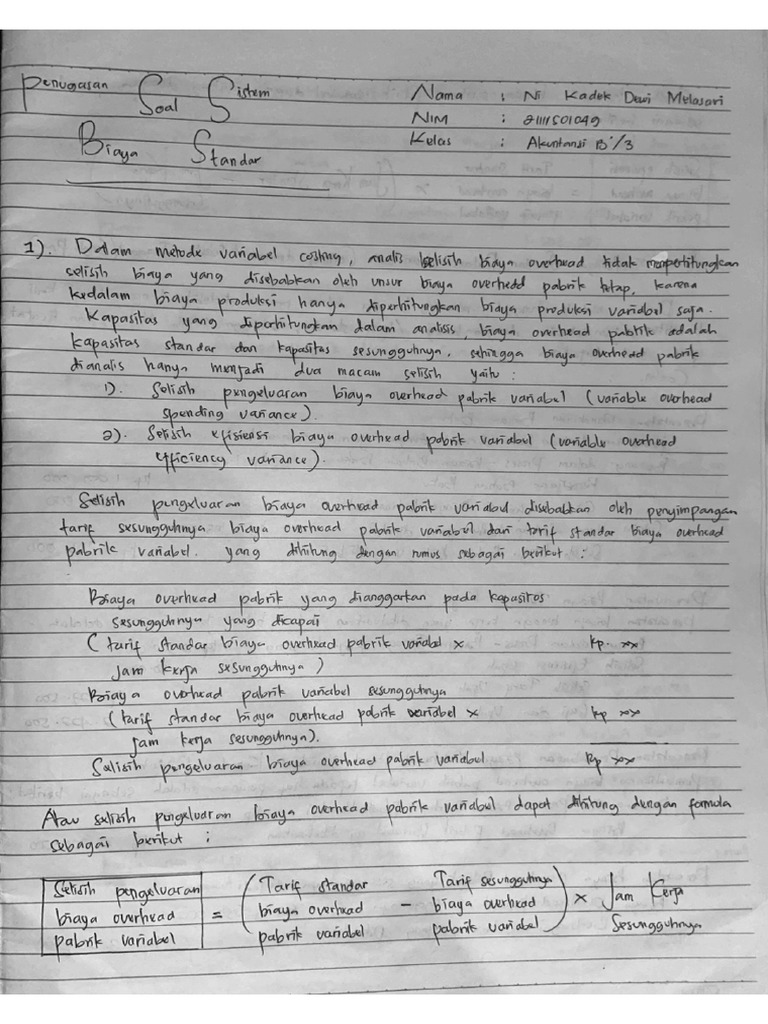 Penugasan Soal Sistem
Biaya Standar
Nama : Ni Kadek Dewi Melasari
NIM : 2111501049
Kelas : Akuntansi B'/3
1). Dalam metode variabel costing, analis selisih biaya overhead tidak memperhitungkan
selisih biaya yang disebabkan oleh unsur biaya overhead pabrik tetap, karena
kedalam biaya produksi hanya diperhitungkan biaya produksi variabel saja.
Kapasitas yang diperhitungkan dalam analisis, biaya overhead pabrik adalah
kapasitas standar dan kapasitas sesungguhnya, sehingga biaya overhead pabrik
dianalis hanya menjadi dua macam selisih yaitu :
1). Selisih pengeluaran biaya overhead pabrik variabel (variable overhead
spending variance).
2). Selisih efisiensi biaya overhead pabrik variabel (variable overhead
efficiency variance).
Selisih pengeluaran biaya overhead pabrik variabel disebabkan oleh penyimpangan
tarif sesungguhnya biaya overhead pabrik variabel dari tarif standar biaya overhead
pabrik variabel. yang dihitung dengan rumus sebagai berikut :
Biaya overhead pabrik yang dianggarkan pada kapasitas
sesungguhnya yang dicapai
(tarif standar biaya overhead pabrik variabel x Rp. xx
jam kerja sesungguhnya)
Biaya overhead pabrik variabel sesungguhnya
(tarif standar biaya overhead pabrik variabel x Rp xx
jam kerja sesungguhnya).
Selisih pengeluaran biaya overhead pabrik variabel Rp xx
Atau selisih pengeluaran biaya overhead pabrik variabel dapat dihitung dengan formula
sebagai berikut :
Selisih pengeluaran biaya overhead pabrik variabel = (Tarif standar biaya overhead pabrik variabel - Tarif sesungguhnya biaya overhead pabrik variabel) x Jam Kerja Sesungguhnya